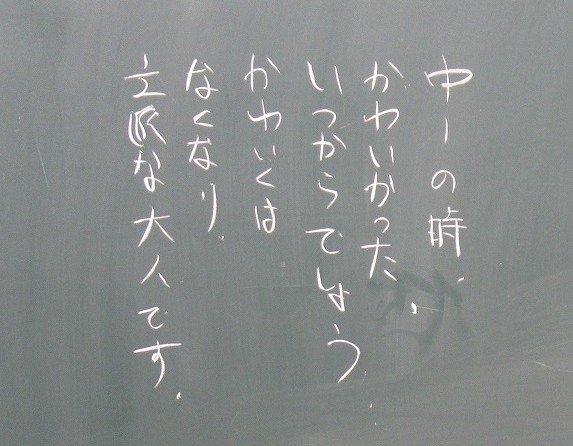 中一の時、
かわいかった。
いつからでしょう…
かわいくは
なくなり、
立派な大人です。